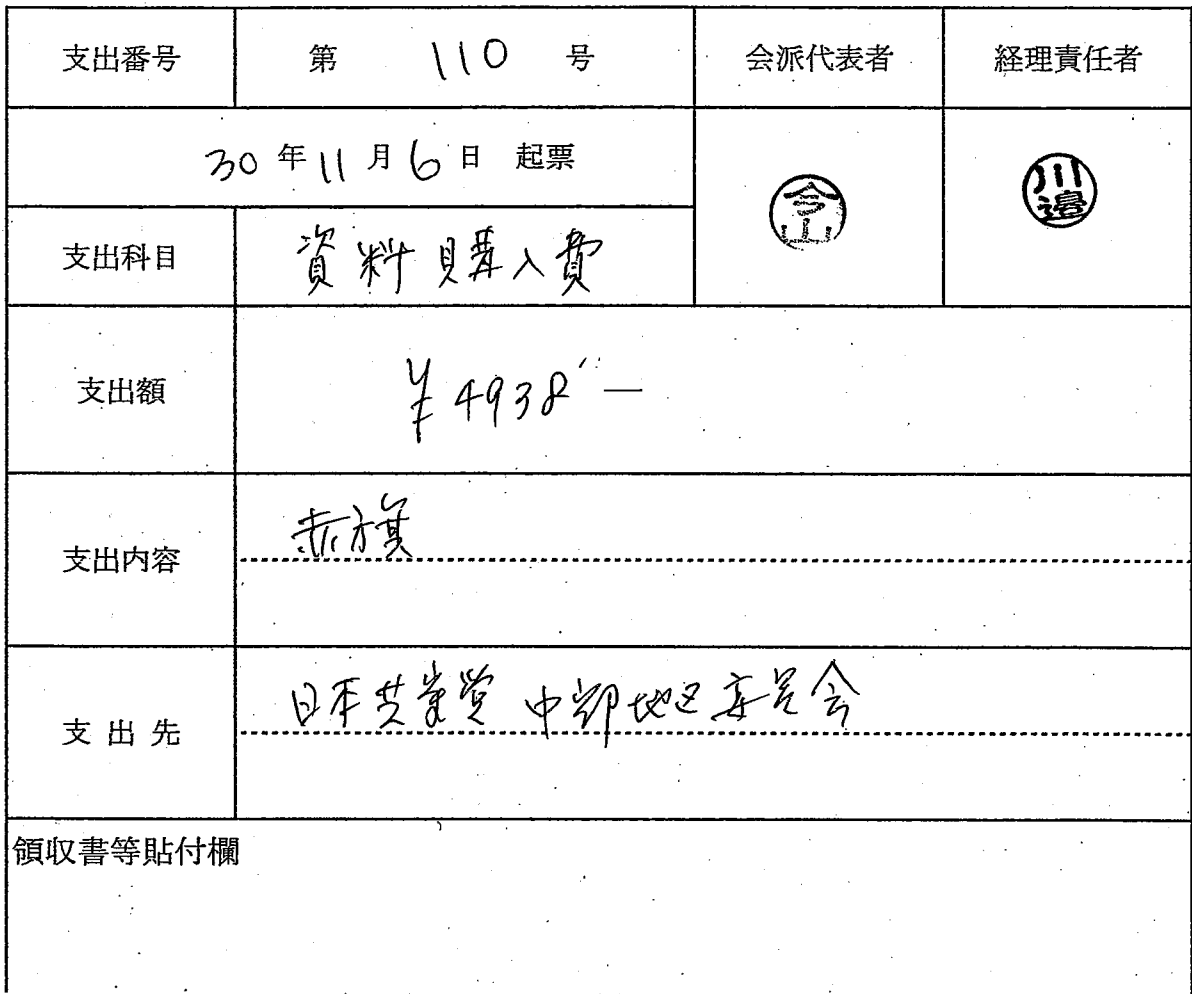 支出番号 第 110 号 会派代表者 経理責任者
30年11月6日 起票
今山 川邊
支出科目 資料購入費
支出額 ¥4938-
支出内容 赤旗
支出先 日本共産党 中部地区委員会
領収書等貼付欄